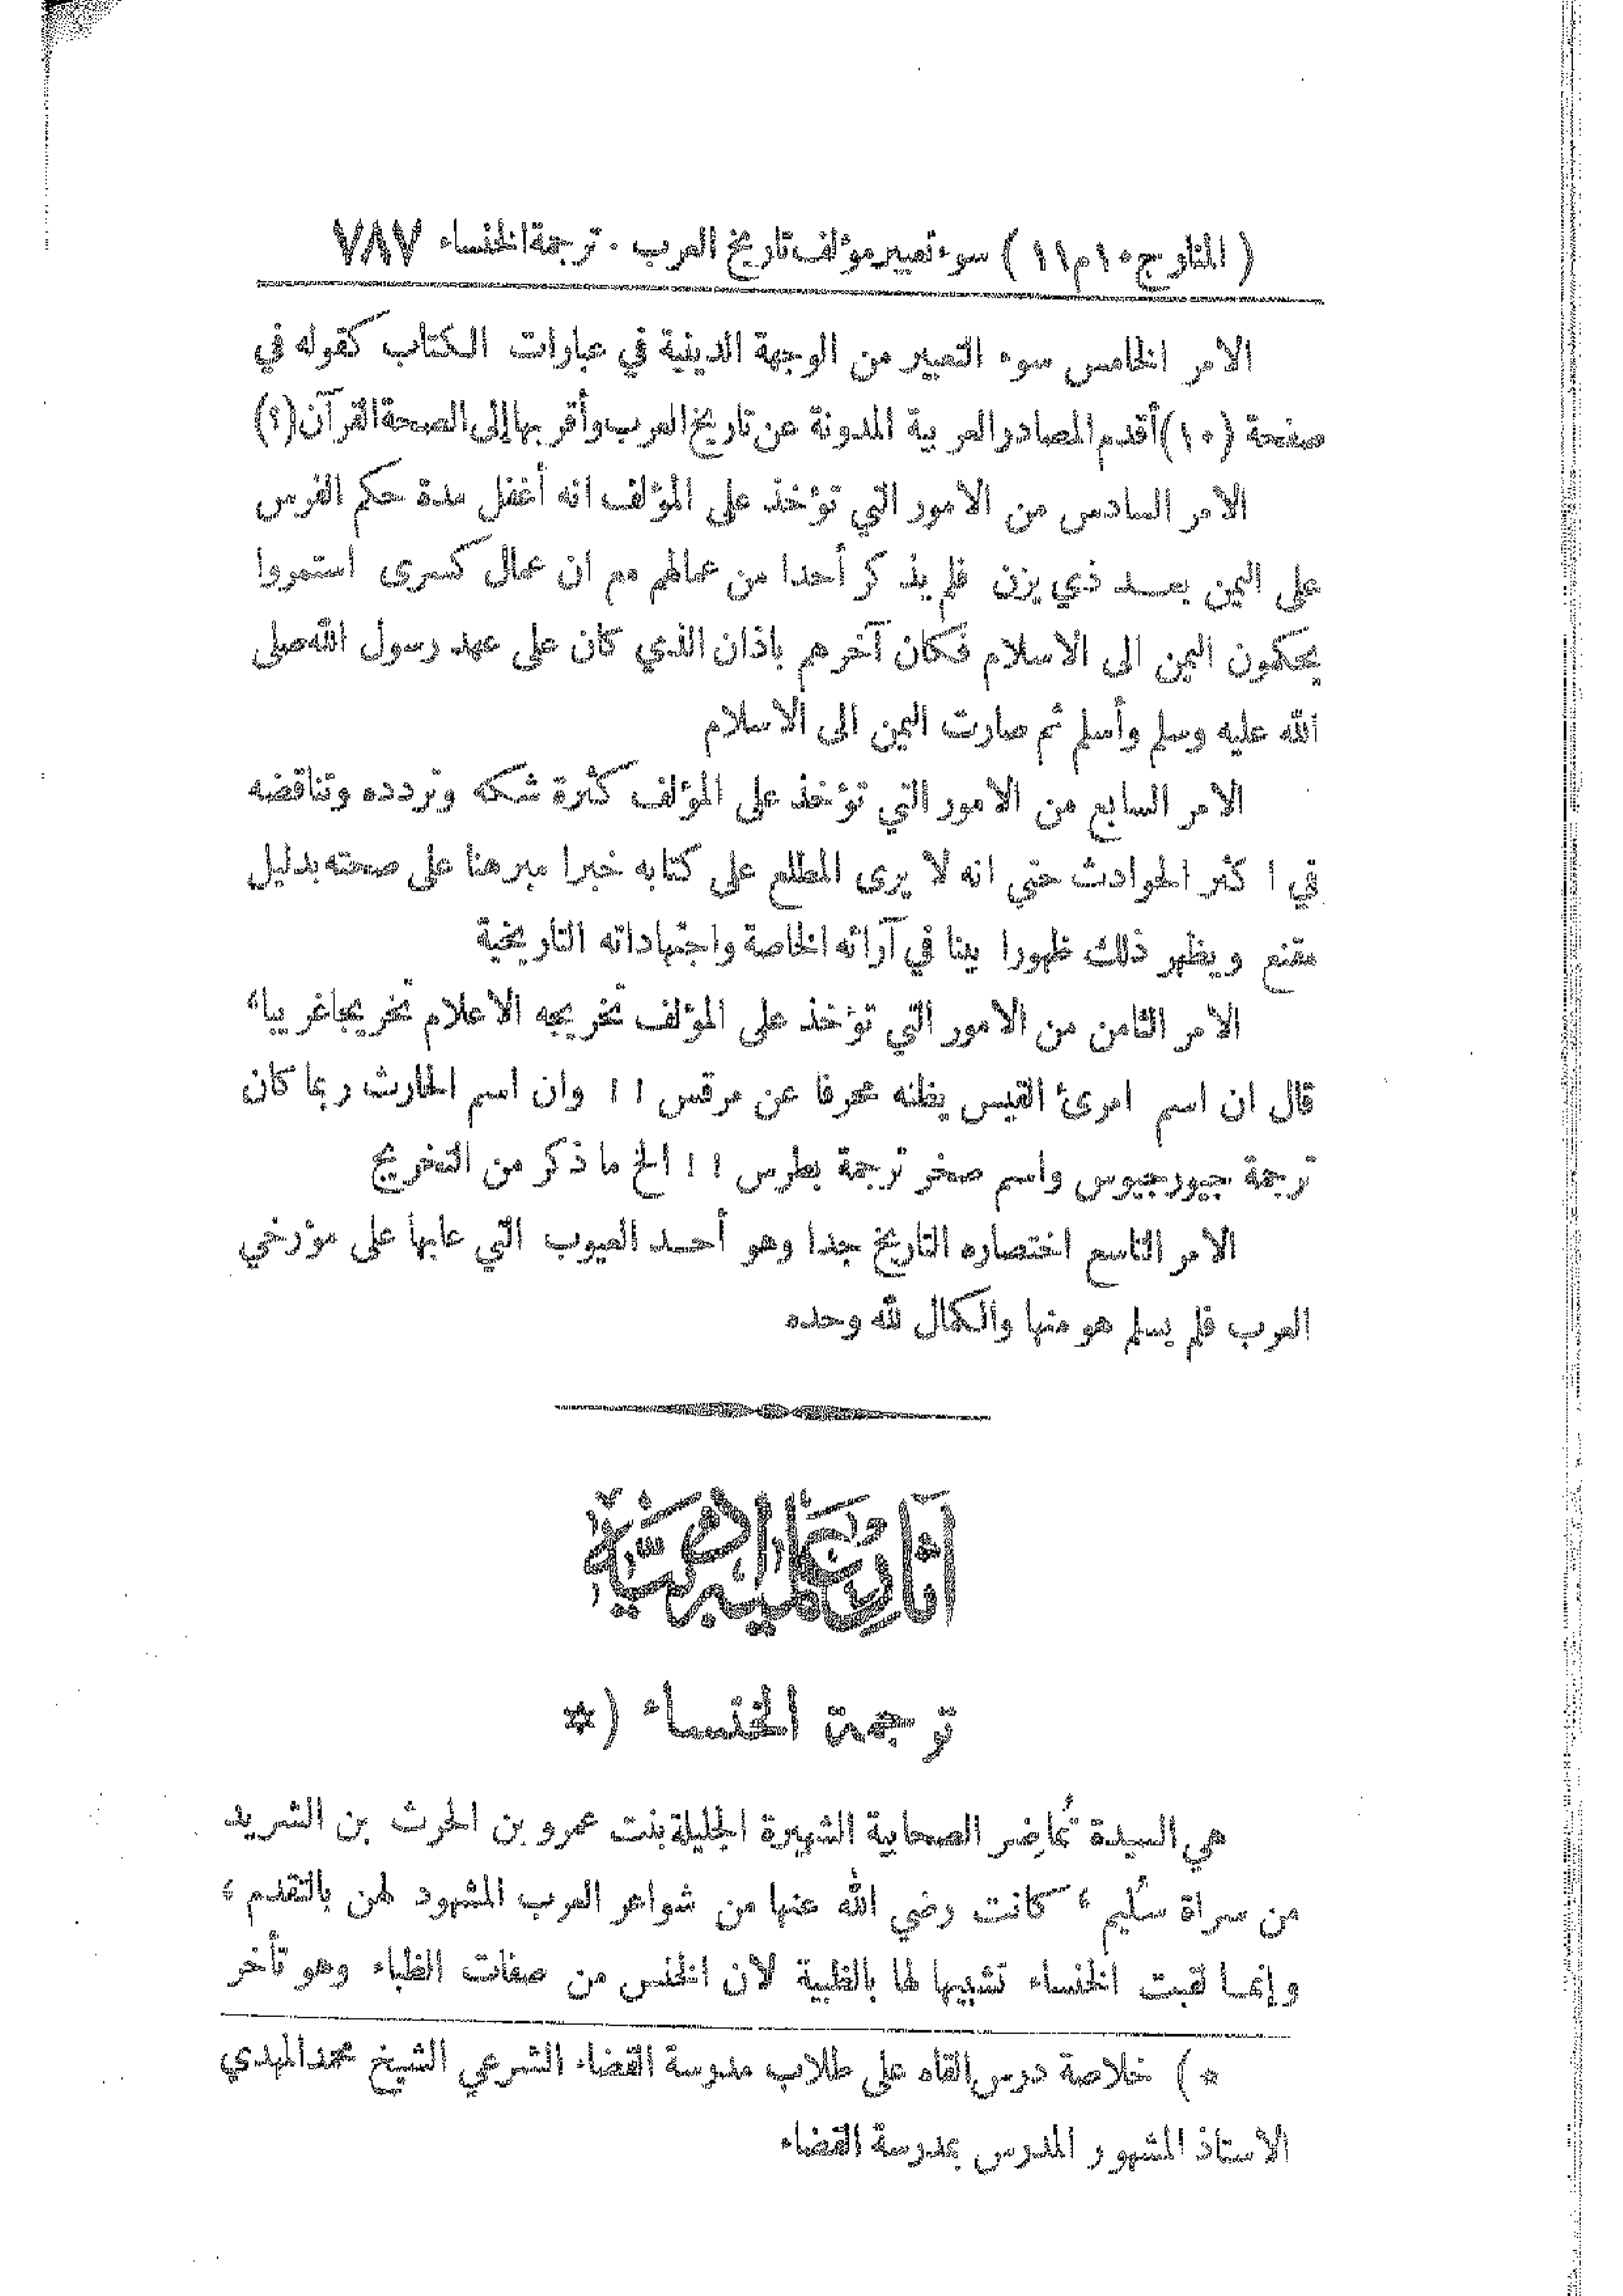 ( المنار ج ١٠ م ١١ ) سوء تعبير مؤلف تاريخ العرب . ترجمة الخنساء ٧٨٧
الامر الخامس سوء التعبير من الوجهة الدينية في عبارات الكتاب كقوله في
صفحة (١٠) أقدم المصادر العربية المدونة عن تاريخ العرب وأقربها إلى الصحة القرآن (؟)
الامر السادس من الامور التي تؤخذ على المؤلف انه أغفل مدة حكم الفرس
على اليمن بعد ذي يزن فلم يذكر أحدا من عمالهم مع ان عمال كسرى استمروا
يحكمون اليمن الى الاسلام فكان آخرهم باذان الذي كان على عهد رسول الله صلى
الله عليه وسلم وأسلم ثم صارت اليمن الى الاسلام
الامر السابع من الامور التي تؤخذ على المؤلف كثرة شكه وتردده وتناقضه
في اكثر الحوادث حتى انه لا يرى المطلع على كتابه خبرا مبرهنا على صحته بدليل
مقنع ويظهر ذلك ظهورا بينا في آرائه الخاصة واجتهاداته التاريخية
الامر الثامن من الامور التي تؤخذ على المؤلف تخريجه الاعلام تخريجا غريبا ،
قال ان اسم امرئ القيس يظنه محرفا عن مرقس !! وان اسم الحارث ربما كان
ترجمة جيورجيوس واسم صخر ترجمة بطرس !! الخ ما ذكر من التخريج
الامر التاسع اختصاره التاريخ جدا وهو أحد العيوب التي عابها على مؤرخي
العرب فلم يسلم هو منها والكمال لله وحده
آثار علمية أدبية
ترجمة الخنساء (*
هي السيدة تُماضِر الصحابية الشهيرة الجليلة بنت عمرو بن الحرث بن الشريد
من سراة سُليم ، كانت رضي الله عنها من شواعر العرب المشهود لهن بالتقدم ،
وإنما لقبت الخنساء تشبيها لها بالظبية لان الخنس من صفات الظباء وهو تأخر
*) خلاصة درس القاه على طلاب مدرسة القضاء الشرعي الشيخ محمد المهدي
الاستاذ المشهور المدرس بمدرسة القضاء